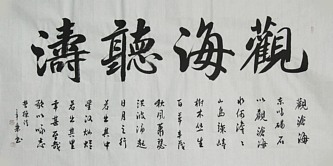 觀海聽濤
觀滄海
東臨碣石
以觀滄海
水何澹澹
山島竦峙
樹木叢生
百草豐茂
秋風蕭瑟
洪波湧起
日月之行
若出其中
星漢燦爛
若出其里
幸甚至哉
歌以咏志
曹操詩